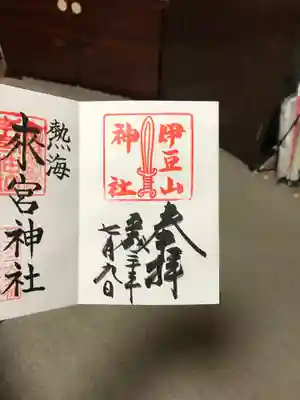 伊豆山
神社
奉拝
平成三十年
七月九日
熱海
來宮神社